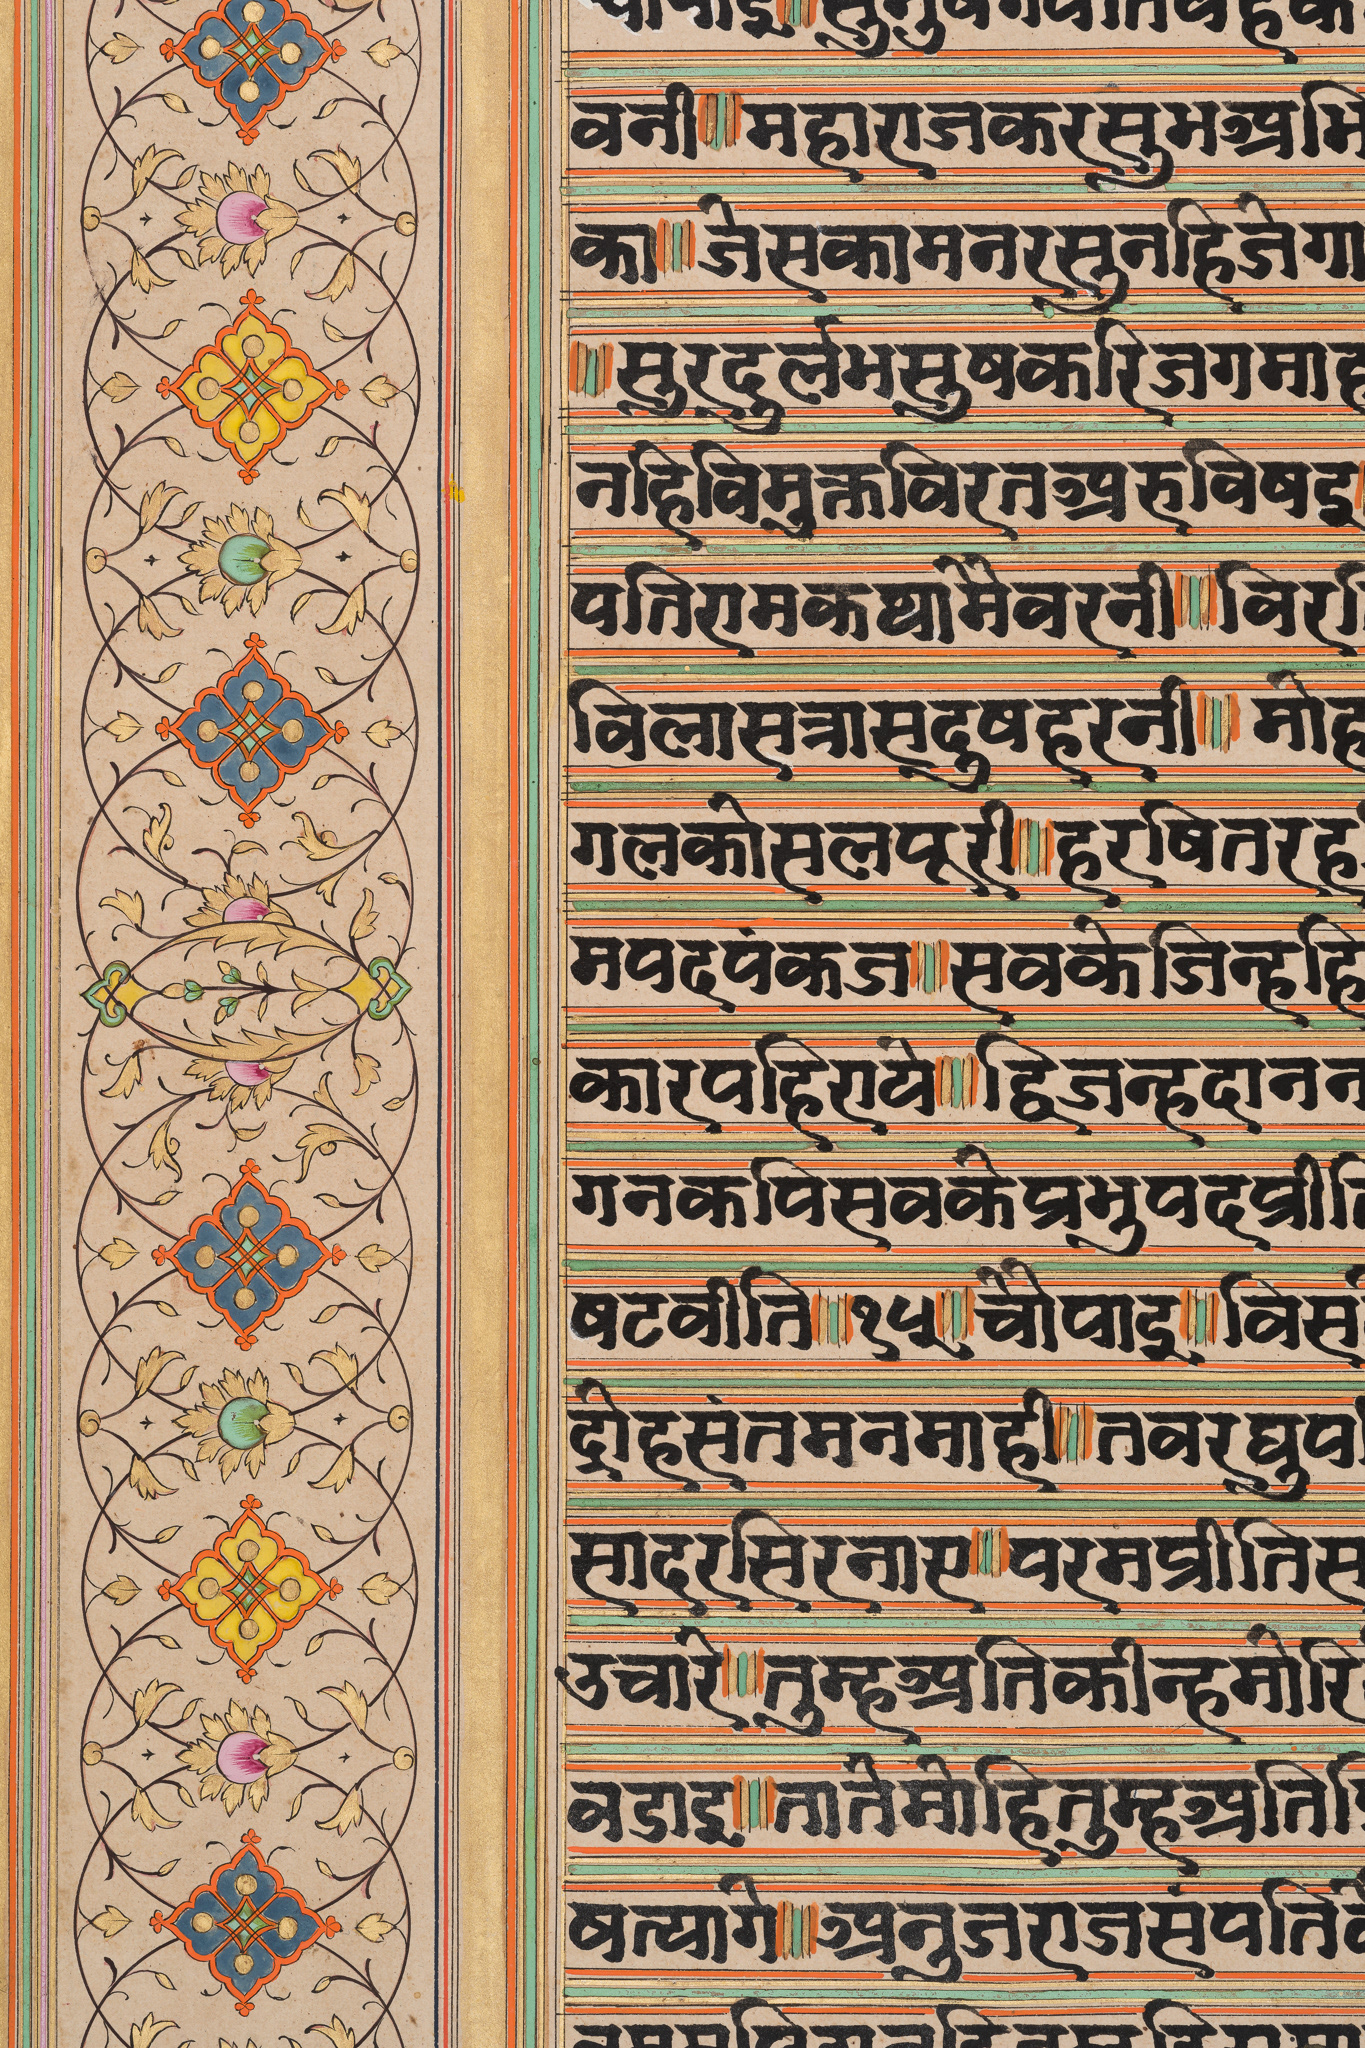 चौपाइ॥सुनुषगपतियहक
वनी॥महाराजकरसुभअभि
का॥जेसकामनरसुनहिजेगा
॥सुरदुर्लभसुषकरिजगमाह
नहिविमुक्तविरतअरुविषइ
पतिरामकथामैवरनी॥विरति
विलासत्रासदुषहरनी॥मोह
गलकोसलपूरी॥हरषितरह
मपदपंकज॥सवकेजिन्हहि
कारपहिराये॥द्विजन्हदानन
गनकपिसवकेप्रभुपदप्रीति
षटवीति॥१५॥चौपाइ॥विस
द्रोहसंतमनमाही॥तवरघुप
सादरसिरनाए॥परमप्रीतिस
उचारे॥तुम्हअतिकीन्हमोरि
वडाइ॥तातेमोहितुम्हअतिप्रि
षत्यागे॥अनुजराजसंपति